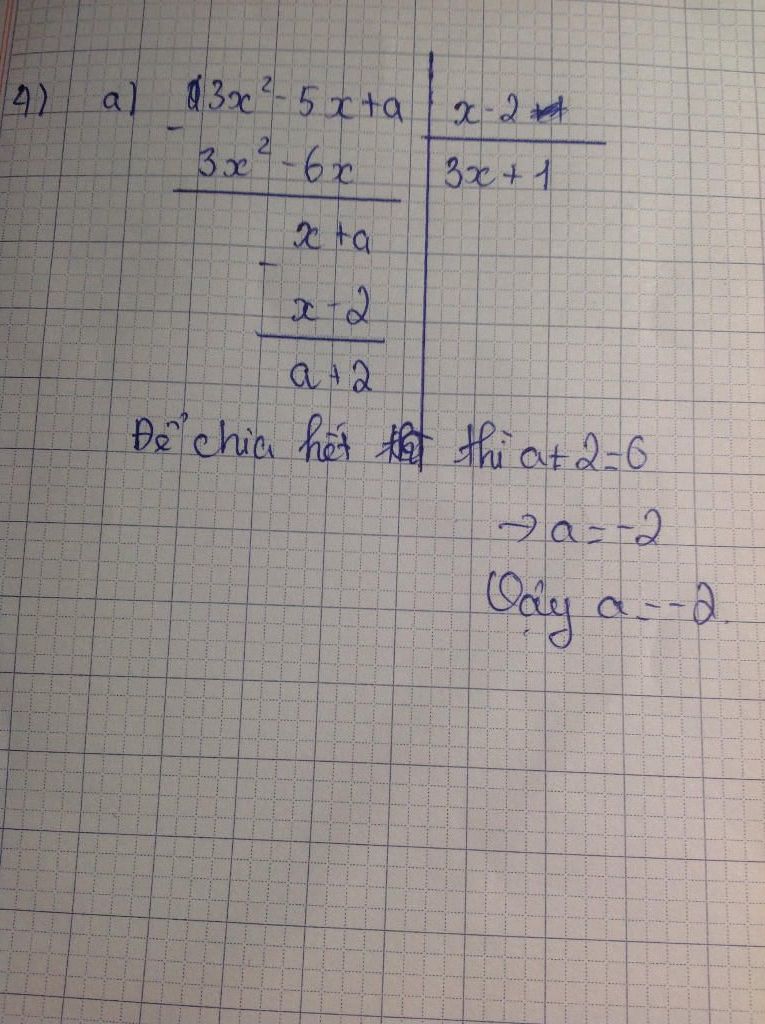 4) a) 3x² - 5x + a | x - 2
- 3x² - 6x | 3x + 1
x + a
- x - 2
a + 2
Để chia hết thì a + 2 = 6
→ a = -2
Vậy a = -2.